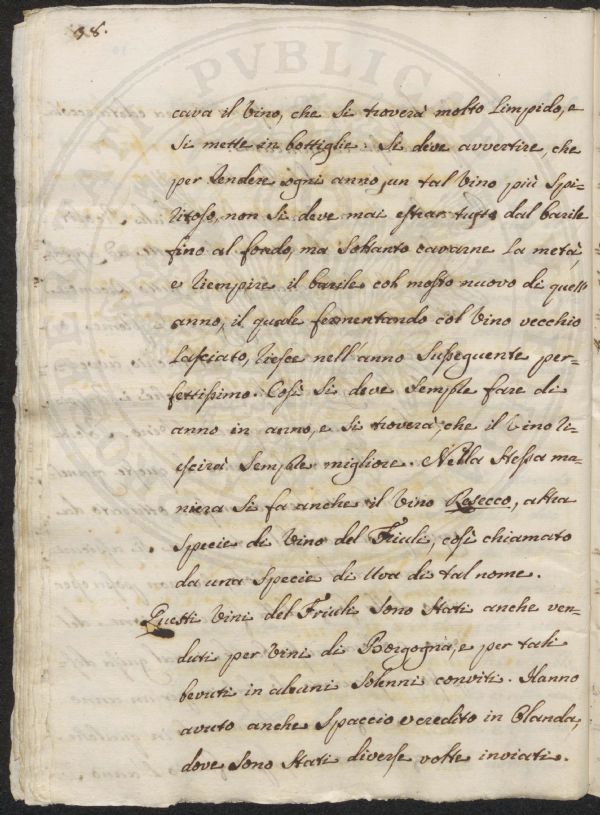 38.
cava il Vino, che si troverà molto limpido, e
si mette in bottiglie. Si deve avvertire, che
per rendere ogni anno un tal Vino più Spi-
ritoso, non si deve mai estrar tutto dal barile
fino al fondo, ma soltanto cavarne la metà,
e riempire il barile col mosto nuovo di quell'
anno, il quale fermentando col Vino vecchio
lasciato, riesce nell'anno susseguente per-
fettissimo. Così si deve sempre fare di
anno in anno, e si troverà, che il Vino ri-
escirà sempre migliore. Nella stessa ma-
niera si fa anche il Vino Resecco, altra
specie di Vino del Friuli, così chiamato
da una specie di Uva di tal nome.
Questi Vini del Friuli sono stati anche ven-
duti per Vini di Borgogna, e per tali
bevuti in alcuni solenni conviti. Hanno
avuto anche spaccio e credito in Olanda,
dove sono stati diverse volte inviati.